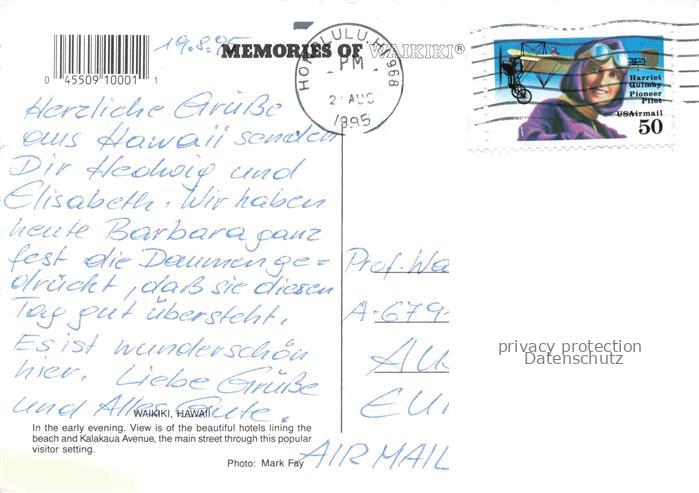 19.8.95
MEMORIES OF WAIKIKI®
0 45509 10001 1
HONOLULU, HI 968
PM
2 AUG
1995
Harriet
Quimby
Pioneer
Pilot
USAirmail
50
Herzliche Grüße
aus Hawaii senden
Dir Hedwig und
Elisabeth. Wir haben
heute Barbara ganz
fest die Daumen ge=
drückt, daß sie diesen
Tag gut übersteht.
Es ist wunderschön
hier. Liebe Grüße
und Alles Gute.
Prof. Wa
A-679
AU
EU
AIRMAIL
privacy protection
Datenschutz
WAIKIKI, HAWAII
In the early evening. View is of the beautiful hotels lining the
beach and Kalakaua Avenue, the main street through this popular
visitor setting.
Photo: Mark Fay